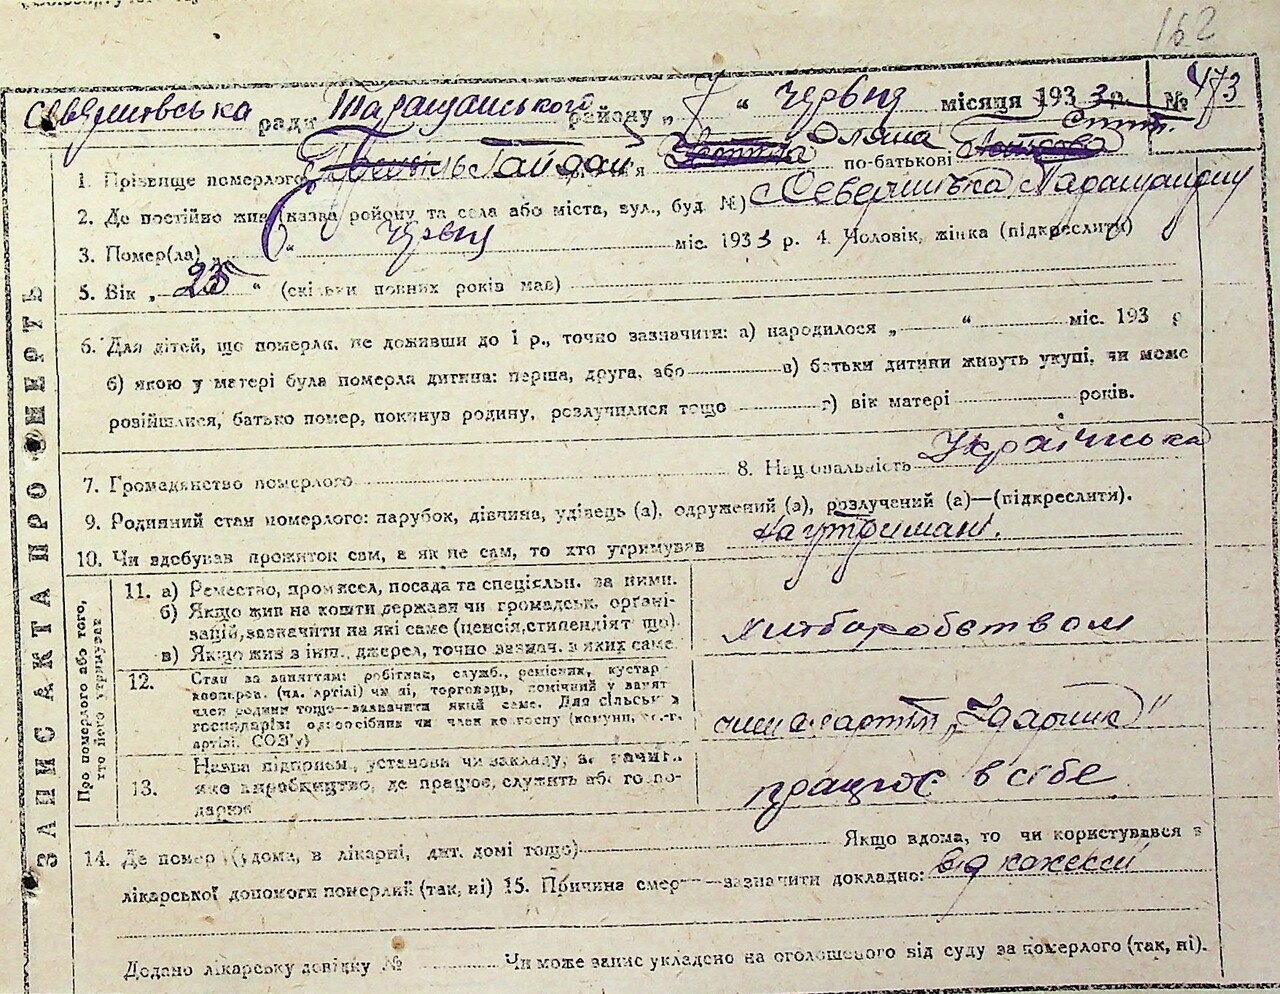 162
Северинівська ради Таращанського району „ 7 “ червня місяця 1933 р. № 473
1. Прізвище померлого Гайдай ім'я Оляна по-батькові Степ.
2. Де постійно жив (назва району та села або міста, вул., буд. №) с. Северинівка Таращанський
3. Помер(ла) „ 6 “ червня міс. 1933 р. 4. Чоловік, жінка (підкреслити)
5. Вік „ 25 “ (скільки повних років мав)
6. Для дітей, що померли, не доживши до 1 р., точно зазначити: а) народилося „ “ міс. 193 р
б) якою у матері була померла дитина: перша, друга, або в) батьки дитини живуть укупі, чи може
розійшлися, батько помер, покинув родину, розлучилися тощо г) вік матері років.
7. Громадянство померлого 8. Національність Українська
9. Родинний стан померлого: парубок, дівчина, удівець (а), одружений (а), розлучений (а)—(підкреслити).
10. Чи здобував прожиток сам, а як не сам, то хто утримував на утримані.
ЗАПИС АКТА ПРО СМЕРТЬ
Про померлого або того, хто його утримував
11. а) Ремество, промисел, посада та спеціяльн. за ними.
б) Якщо жив на кошти держави чи громадськ. органі-
зацій, зазначити на які саме (пенсія, стипендіят що).
в) Якщо жив з інш. джерел, точно зазнач. з яких саме.
хліборобством
12. Стан за заняттям: робітник, служб., ремісник, кустар
кооперов. (чл. артілі) чи ні, торговець, помічний у занят
член родини тощо—зазначити який саме. Для сільськ
господарів: одноосібник чи член колгоспу (комуни,
артілі, СОЗ'у)
член артілі „Ударник“
13. Назва підприєм., установи чи закладу, зазначити
яке виробництво, де працює, служить або госпо-
дарює
працює в себе
14. Де помер (удома, в лікарні, дит. домі тощо) Якщо вдома, то чи користувався з
лікарської допомоги померлий (так, ні) 15. Причина смерти—зазначити докладно: від кахексії
Додано лікарську довідку № Чи може запис укладено на оголошеного від суду за померлого (так, ні).